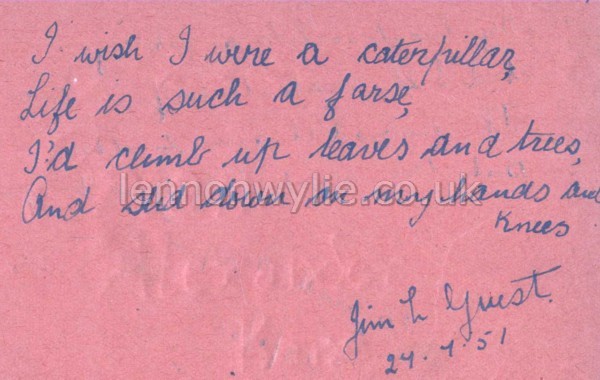 I wish I were a caterpillar,
Life is such a farse,
I'd climb up leaves and trees,
And slid down on my hands and
Knees
lennonwylie.co.uk
Jim L Guest.